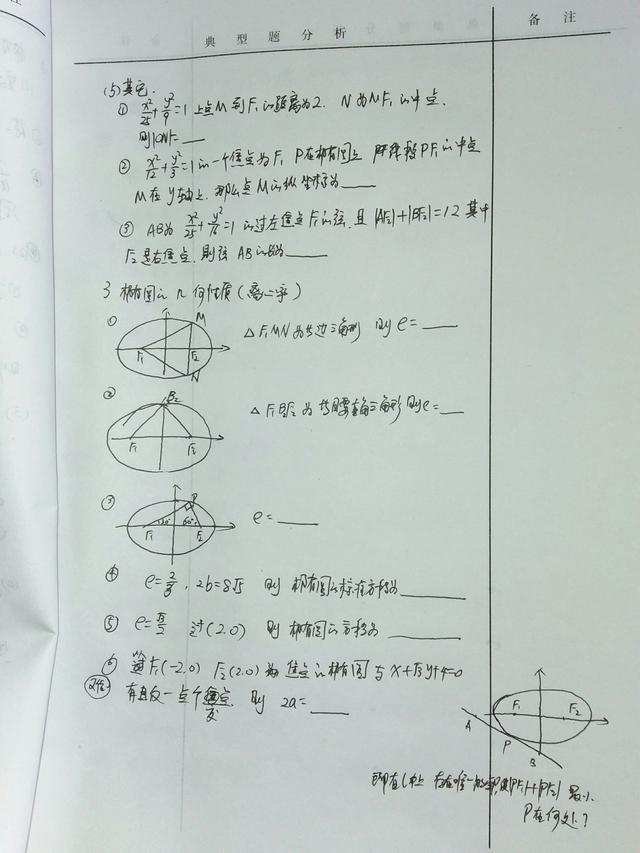 典型题分析
备注
(5) 其它.
① x²/25+y²/9=1 上点M到F₁的距离为2. N为MF₁的中点.
则|ON|=____
② x²/12+y²/3=1的一个焦点为F₁ P在椭圆上 线段PF₁的中点
M在y轴上. 那么点M的纵坐标为____
③ AB为 x²/25+y²/16=1的过左焦点F₁的弦. 且|AF₂|+|BF₂|=12 其中
F₂是右焦点. 则弦AB的长为____
3 椭圆的几何性质(离心率)
① M F₁ F₂ N
△F₁MN为等边三角形 则e=____
② B₂ F₁ F₂
△F₁B₂F₂为等腰直角三角形 则e=__
③ P F₁ 30° 60° F₂
e=____
④ e=2/3, 2b=8√5 则椭圆的标准方程为____
⑤ e=√3/2 过(2.0) 则椭圆的方程为____
⑥ F₁(-2.0) F₂(2.0)为焦点的椭圆与x+√3y+4=0
有且仅一点个交点. 则 2a=____
A F₁ F₂ P B
即在l上 存在唯一的点P,使|PF₁|+|PF₂| 最小.
P在何处?